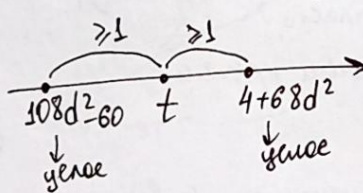 ≥1 ≥1
108d²-60 t 4+68d²
↓ ↓
целое целое